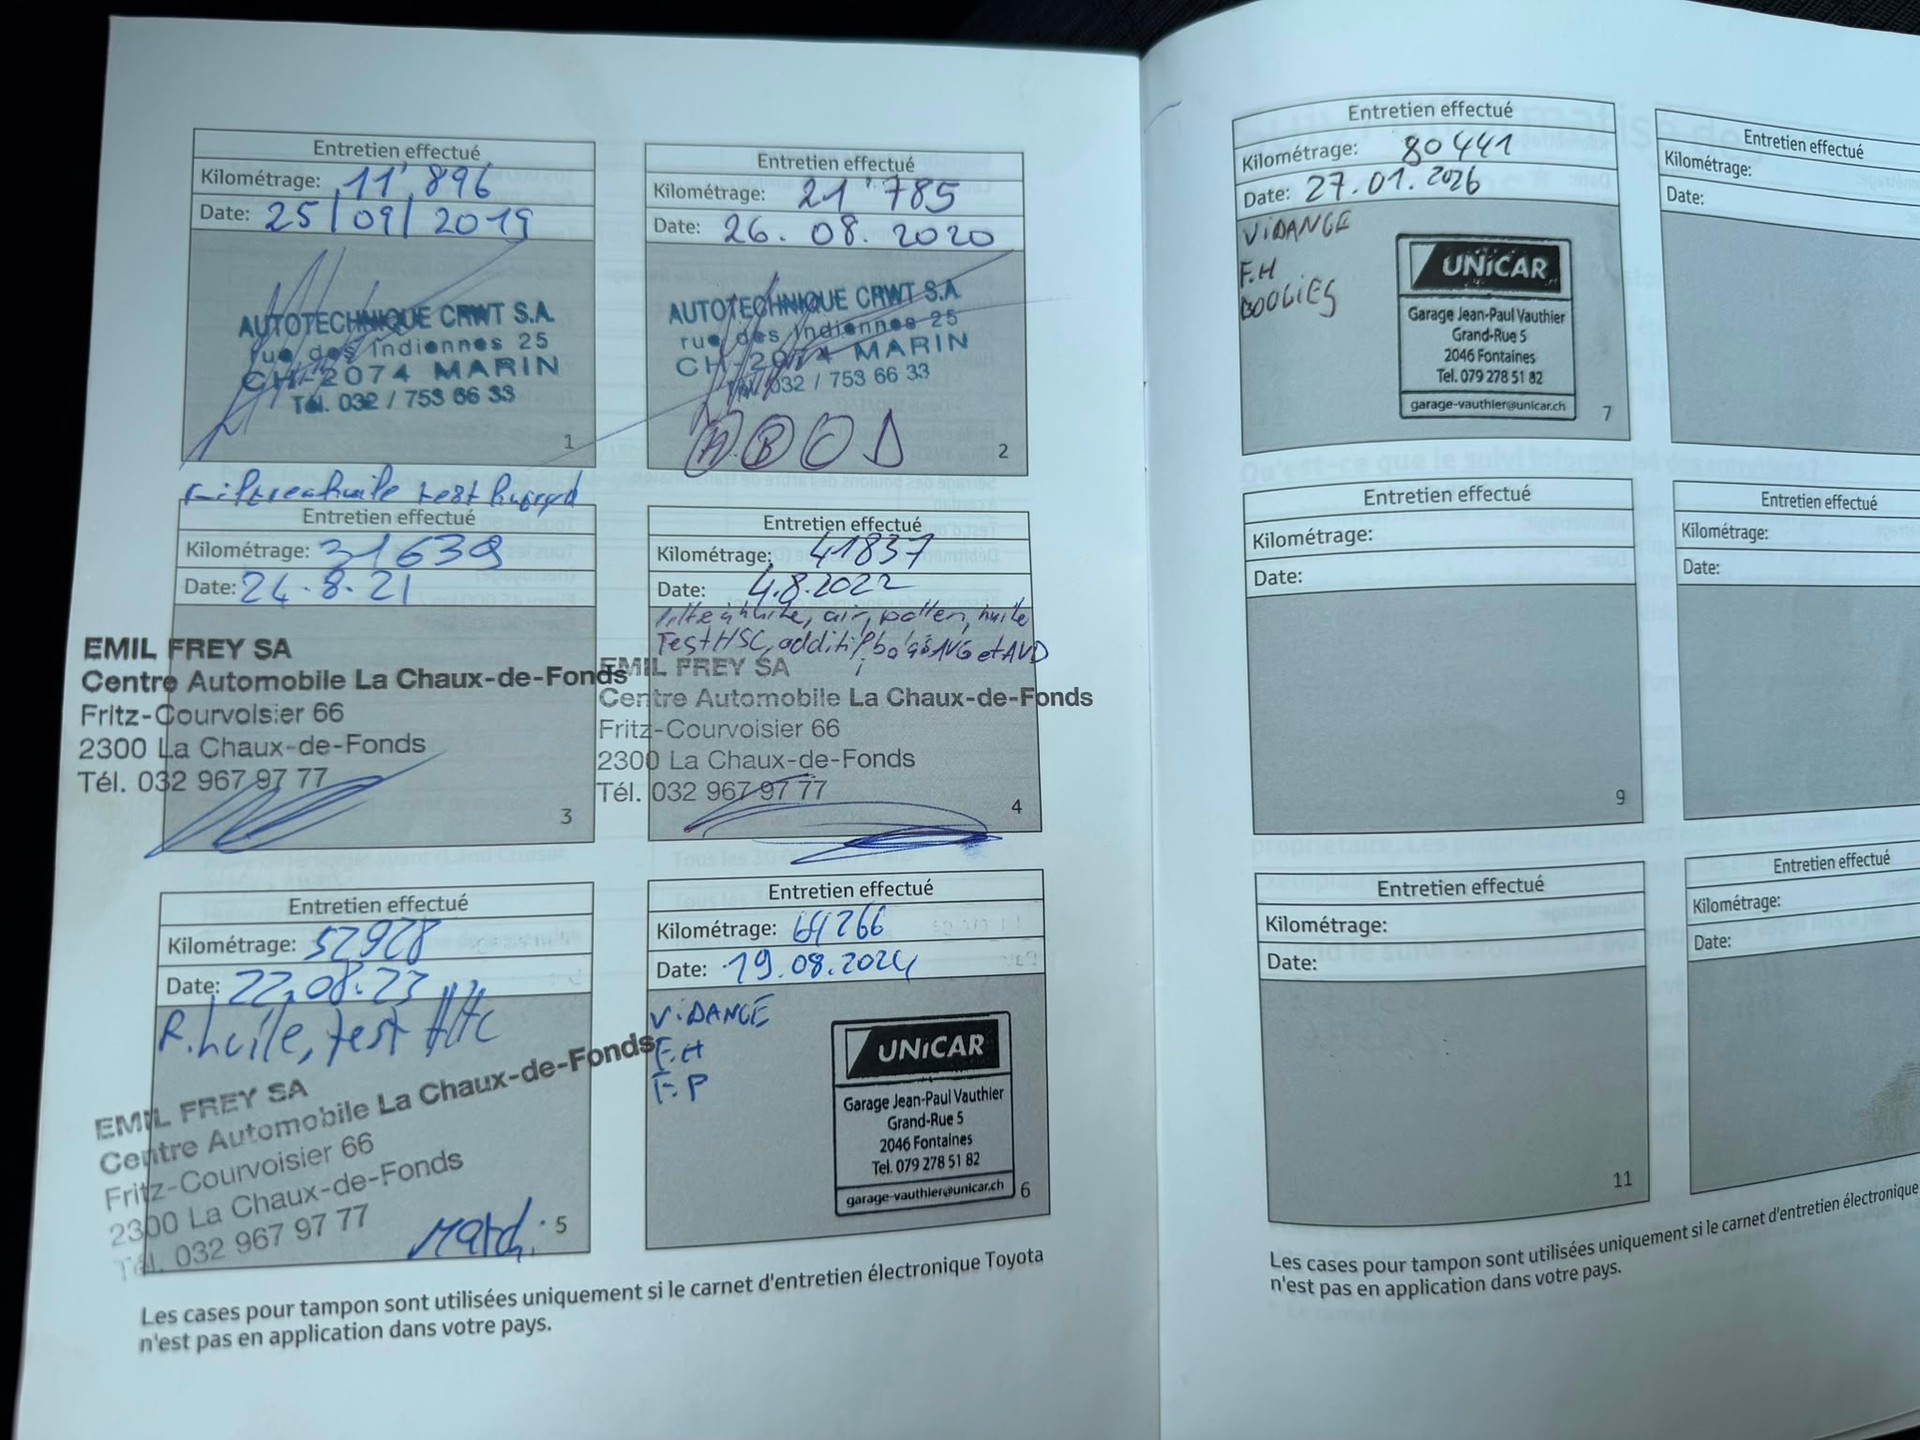 Entretien effectué
Kilométrage: 11'896
Date: 25/09/2019
AUTOTECHNIQUE CRWT S.A.
rue des Indiennes 25
CH-2074 MARIN
Tél. 032 / 753 66 33
1
Entretien effectué
Kilométrage: 21'785
Date: 26.08.2020
AUTOTECHNIQUE CRWT S.A.
rue des Indiennes 25
CH-2074 MARIN
Tél. 032 / 753 66 33
A B C D
2
test
Entretien effectué
Kilométrage: 31639
Date: 24.8.21
EMIL FREY SA
Centre Automobile La Chaux-de-Fonds
Fritz-Courvoisier 66
2300 La Chaux-de-Fonds
Tél. 032 967 97 77
3
Entretien effectué
Kilométrage: 41837
Date: 4.8.2022
filtre à huile, air, pollen, huile
Test HSC, additif et AVD
EMIL FREY SA
Centre Automobile La Chaux-de-Fonds
Fritz-Courvoisier 66
2300 La Chaux-de-Fonds
Tél. 032 967 97 77
4
Entretien effectué
Kilométrage: 52928
Date: 22.08.23
R.huile, test
EMIL FREY SA
Centre Automobile La Chaux-de-Fonds
Fritz-Courvoisier 66
2300 La Chaux-de-Fonds
Tél. 032 967 97 77
5
Entretien effectué
Kilométrage: 64266
Date: 19.08.2024
ViDANGE
F.H
F.P
UNiCAR
Garage Jean-Paul Vauthier
Grand-Rue 5
2046 Fontaines
Tel. 079 278 51 82
garage-vauthier@unicar.ch
6
Les cases pour tampon sont utilisées uniquement si le carnet d'entretien électronique Toyota
n'est pas en application dans votre pays.
Entretien effectué
Kilométrage: 80441
Date: 27.01.2026
ViDANGE
F.H
BOUGiES
UNiCAR
Garage Jean-Paul Vauthier
Grand-Rue 5
2046 Fontaines
Tel. 079 278 51 82
garage-vauthier@unicar.ch
7
Entretien effectué
Kilométrage:
Date:
Entretien effectué
Kilométrage:
Date:
9
Entretien effectué
Kilométrage:
Date:
Entretien effectué
Kilométrage:
Date:
11
Entretien effectué
Kilométrage:
Date:
Les cases pour tampon sont utilisées uniquement si le carnet d'entretien électronique
n'est pas en application dans votre pays.